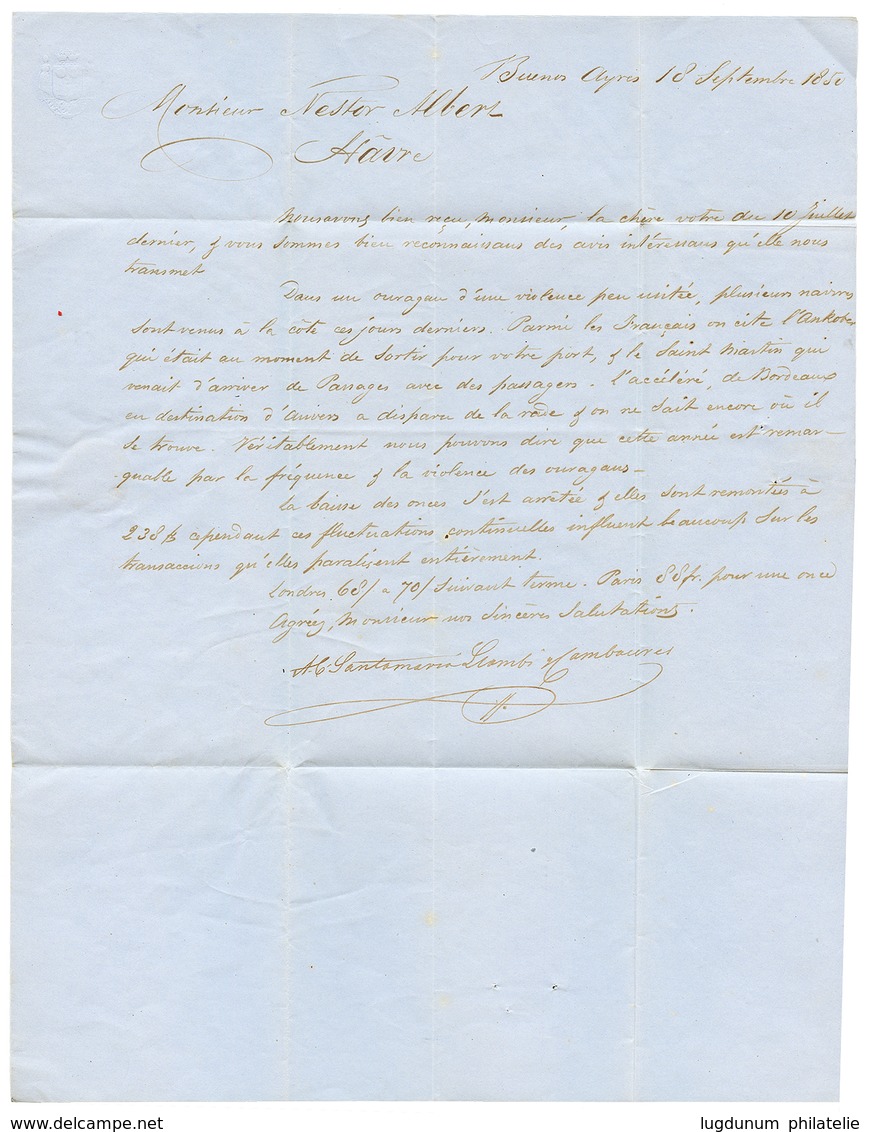 Buenos Ayres 18 Septembre 1850
Monsieur Nestor Albert
Hâvre
Nous avons bien reçu, Monsieur, la chère votre du 10 Juillet
dernier, & vous sommes bien reconnaissans des avis intéressans qu'elle nous
transmet
Dans un ouragan d'une violence peu usitée, plusieurs navires
sont venus à la côte ces jours derniers. Parmi les Français on cite l'Ankober
qui était au moment de sortir pour votre port, & le Saint Martin qui
venait d'arriver de Passages avec des passagers. l'accéléré, de Bordeaux
en destination d'Anvers a disparu de la rade & on ne sait encore où il
se trouve. Véritablement nous pouvons dire que cette année est remar-
quable par la fréquence & la violence des ouragans-
La baisse des onces s'est arrêtée & elles sont remontées à
238 cependant ces fluctuations continuelles influent beaucoup sur les
transaccions qu'elles paralisent entièrement.
Londres 68/ a 70/ suivant terme. Paris 88 fr. pour une once
Agréez, Monsieur nos sincères salutations.
Santamaria Llambi & Cambaceres
www.delcampe.net
lugdunum philatelie